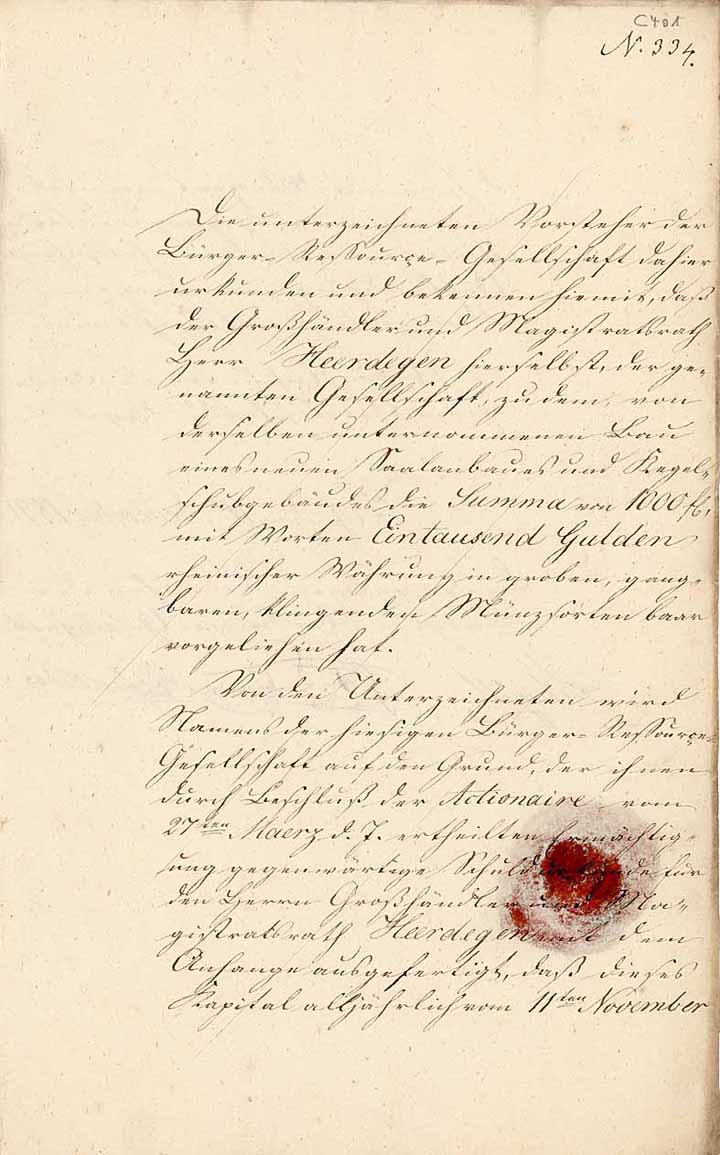 C401
N. 334.
Die unterzeichneten Vorsteher der
Bürger-Ressource-Gesellschaft dahier
urkunden und bekennen hiemit, daß
der Großhändler und Magistratsrath
Herr Heerdegen hierselbst, der ge-
nannten Gesellschaft, zu dem, von
derselben unternommenen Bau
eines neuen Saalanbaues und Kegel-
schubgebäudes die Summa von 1000 fl,
mit Worten Eintausend Gulden
rheinischer Währung in groben, gang-
baren, klingenden Münzsorten baar
vorgeliehen hat.
Von den Unterzeichneten wird
Namens der hiesigen Bürger-Ressource-
Gesellschaft auf den Grund, der ihnen
durch Beschluß der Actionaire vom
27ten Maerz d. J. ertheilten Ermächtig-
ung gegenwärtige Schuldurkunde für
den Herrn Großhändler und Ma-
gistratsrath Heerdegen mit dem
Anhange ausgefertigt, daß dieses
Kapital alljährlich vom 11ten November